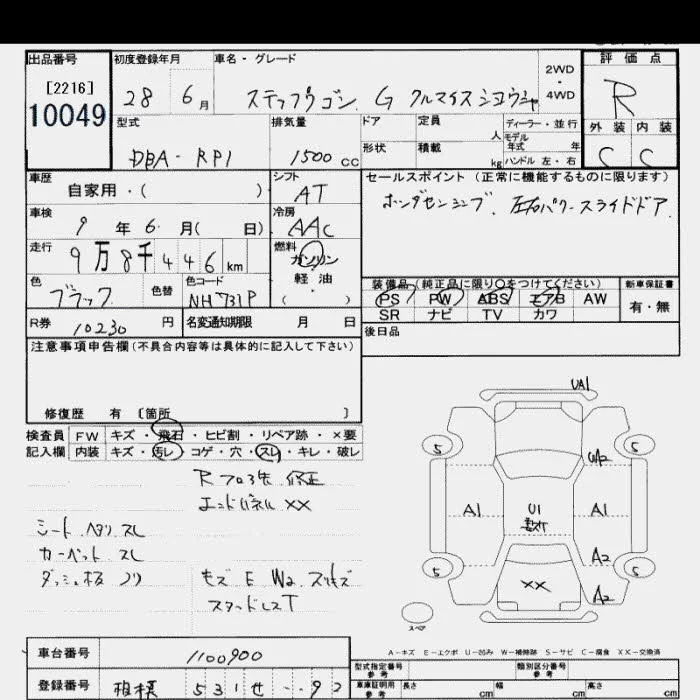 出品番号 初度登録年月 車名・グレード 評価点
[2216] 28 6月 ステップワゴン G クルマイスシヨウシャ 2WD・4WD R
10049
型式 排気量 ドア 定員 人 ディーラー・並行 外装 内装
DBA-RP1 1500cc 形状 積載 kg モデル年式 年 ハンドル 左・右 C C
車歴 自家用・( ) シフト AT セールスポイント (正常に機能するものに限ります)
車検 9年6月( 日) 冷房 AAC ホンダセンシング、左右パワースライドドア
走行 9万8千446km 燃料 ガソリン 軽油 ( )
色 ブラック 色替 色コード NH731P 装備品(純正品に限り○をつけてください) 新車保証書
PS PW ABS エアB AW 有・無
R券 10230円 名変通知期限 月 日 SR ナビ TV カワ
後日品
注意事項申告欄(不具合内容等は具体的に記入して下さい)
修復歴 有 〔箇所 〕
検査員 FW キズ・飛石・ヒビ割・リペア跡・×要
記入欄 内装 キズ・汚レ・コゲ・穴・スレ・キレ・破レ
Rフロア先 修正
エンドパネル XX
シート ヘタリ スレ
カーペット スレ
ダッシュ板 ノリ モズ E W2 スリキズ
スタッドレスT
UA1
5 5
A1 U1 A1
A2
5 XX 5
A2
スペア
A-キズ E-エクボ U-凹み W-補修跡 S-サビ C-腐食 XX-交換済
車台番号 1100900 型式指定番号 参考 類別区分番号 参考
登録番号 相模 531 せ ・・92 車庫証明用 参考 長さ cm 幅 cm 高さ cm